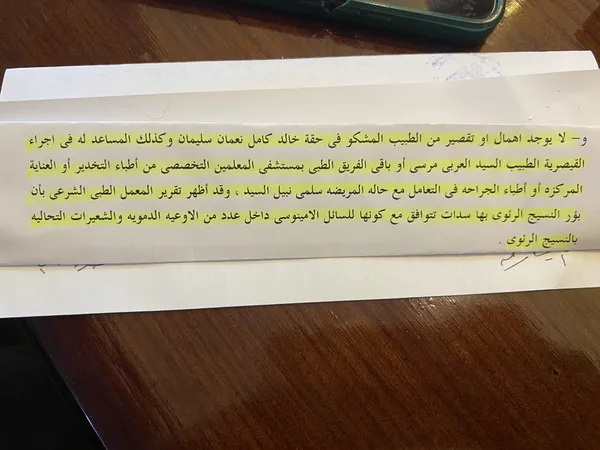 و- لا يوجد اهمال او تقصير من الطبيب المشكو فى حقة خالد كامل نعمان سليمان وكذلك المساعد له فى اجراء
القيصرية الطبيب السيد العربى مرسى أو باقى الفريق الطبى بمستشفى المعلمين التخصصى من أطباء التخدير أو العناية
المركزه أو أطباء الجراحه فى التعامل مع حاله المريضه سلمى نبيل السيد ، وقد أظهر تقرير المعمل الطبى الشرعى بأن
بؤر النسيج الرئوى بها سدات تتوافق مع كونها للسائل الامينوسى داخل عدد من الاوعيه الدمويه والشعيرات التحاليه
بالنسيج الرئوى .